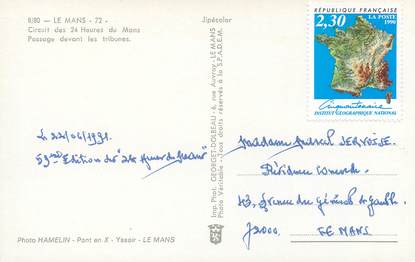 8/80 - LE MANS - 72 -
Circuit des 24 Heures du Mans
Passage devant les tribunes.
Jipécolor
RÉPUBLIQUE FRANÇAISE
2,30
LA POSTE
1990
Cinquantenaire
INSTITUT GÉOGRAPHIQUE NATIONAL
Le 22/06/1991.
59ème Edition des "24 Heures du Mans"
Imp. Phot. GEORGET-DOLBEAU - 6, rue Auvray - LE MANS
Photo Véritable - Tous droits réservés à la S.P.A.D.E.M.
Madame JERVOISE
Résidence
43, Avenue du Général de Gaulle
72000
LE MANS
Photo HAMELIN - Pont en X - Yssoir - LE MANS